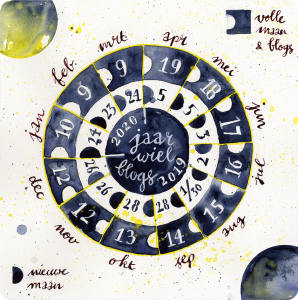 volle
maan
& blogs
jan
feb
mrt
apr
mei
jun
jul
aug
sep
okt
nov
dec
10
9
9
19
18
17
16
15
14
13
12
12
24
23
24
5
5
3
2
1/30
28
28
26
26
2020
jaar
wiel
blogs
2019
nieuwe
maan